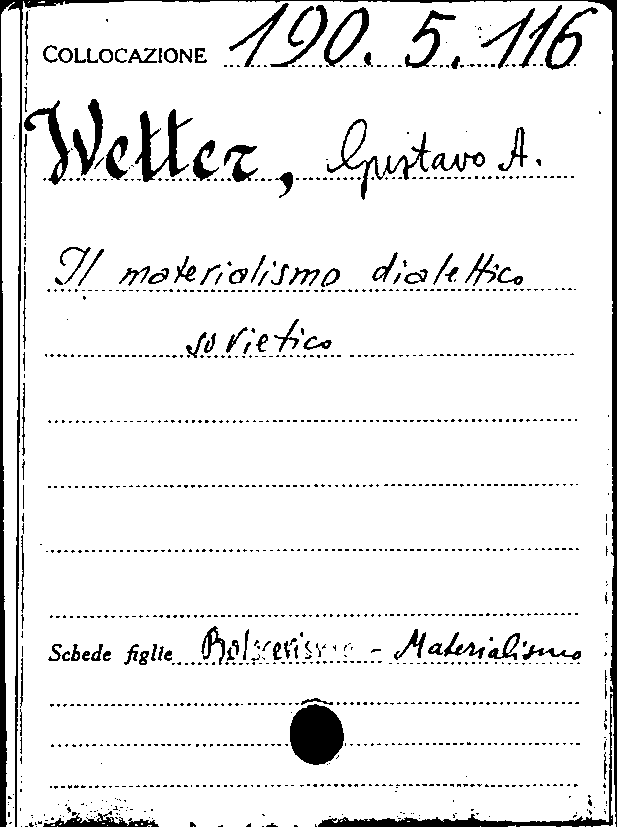 COLLOCAZIONE 190. 5. 116
Wetter, Gustavo A.
Il materialismo dialettico
sovietico
Schede figlie Bolscevismo - Materialismo